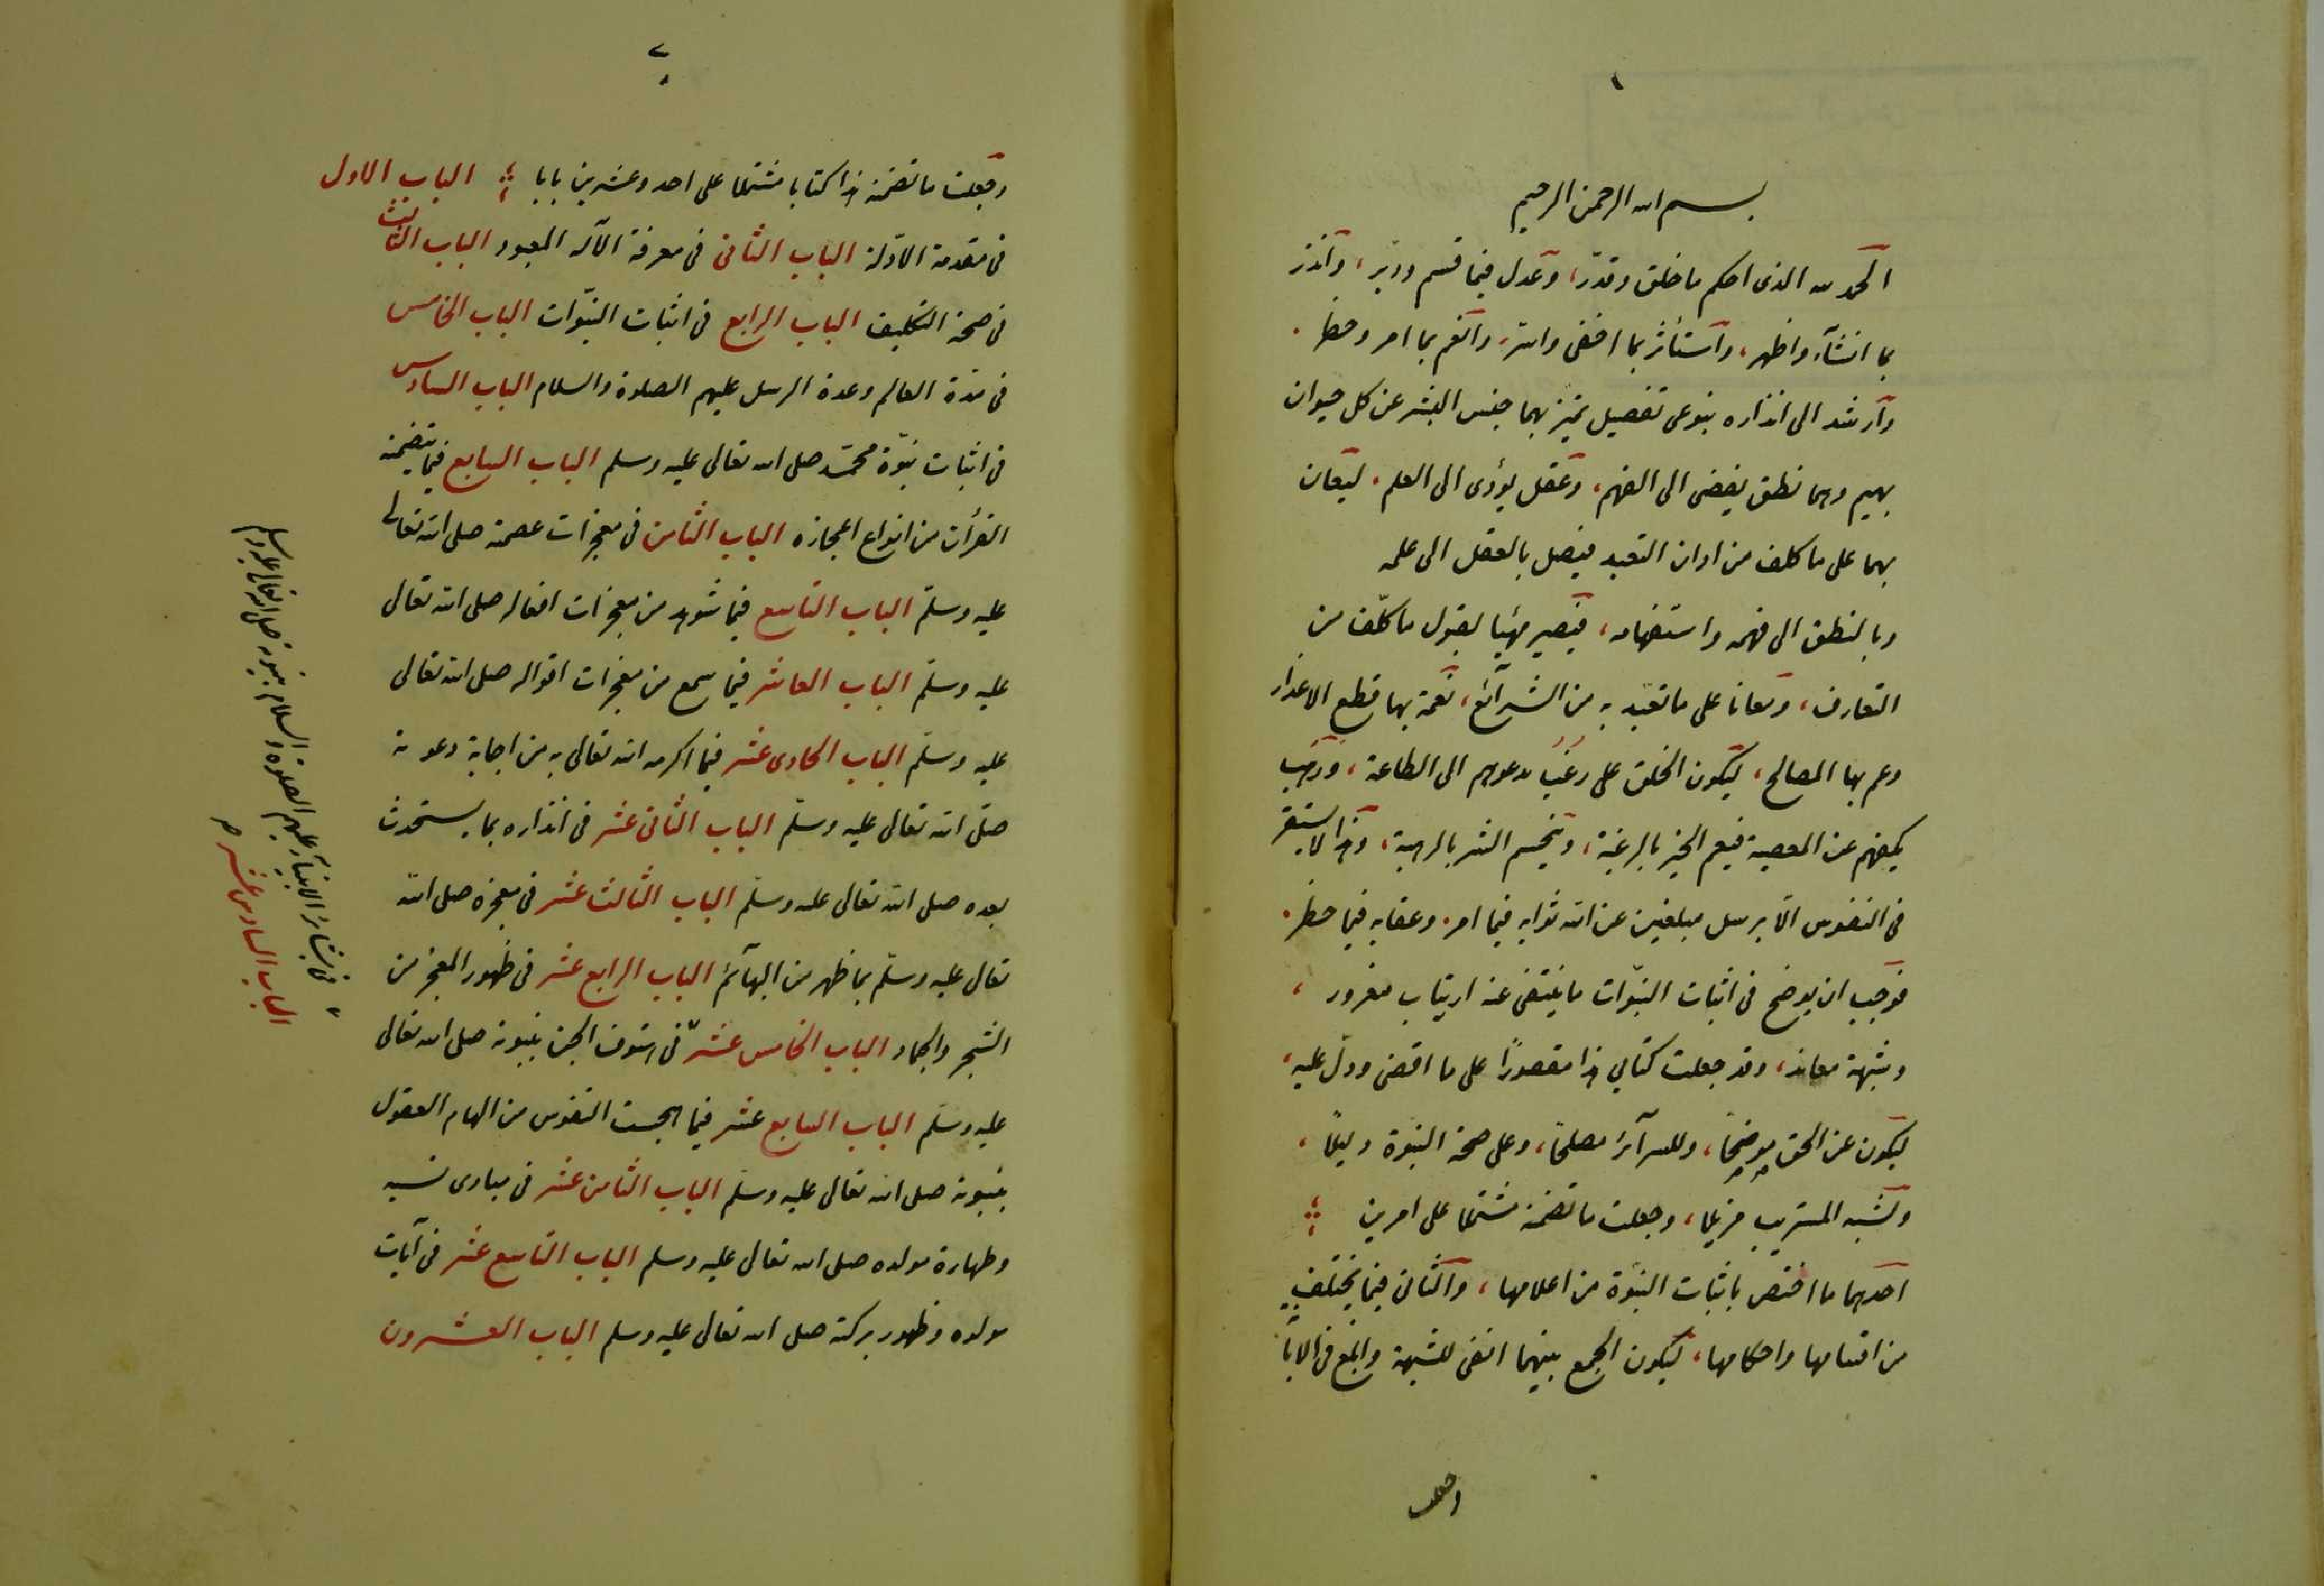 ١
بسم الله الرحمن الرحيم
الحمد لله الذى احكم ما خلق وقدّر، وعدل فيما قسم ودبّر، وانذر
بما انشأ، واظهر، واستأثر بما اخفى واسرّ، وانعم بما امر وحظر.
وارشد الى انذاره بنوعى تفصيل تميّز بهما جنس البشر عن كل حيوان
بهيم وهما نطق يفضى الى الفهم، وعقل يؤدى الى العلم. ليعان
بهما على ما كلف من ادان التعبد فيصل بالعقل الى علمه
وبالنطق الى فهمه واستفهامه، فيصير مهيّيا لقبول ما كلّف من
التعارف، ومعانا على ما تعبّد به من الشرآئع، نعمة بها قطع الاعذار
وعم بها المصالح، ليكون الخلق على رغَبٍ يدعوهم الى الطاعة، ورهب
يكفهم عن المعصية فيعم الخير بالرغبة، وينحسم الشر بالرهبة، وهذا لا يستقر
فى النفوس الّا برسل مبلغين عن الله ثوابه فيما امر. وعقابه فيما حظر.
فوجب ان يوضح فى اثبات النبّوات ما ينتفى عنه ارتياب مغرور،
وشبهة معاند، وقد جعلت كتابي هذا مقصورًا على ما افضى ودلّ عليه،
ليكون عن الحق موضحًا، وللسرآئر مصلحًا، وعلى صحة النبّوة دليلًا،
ولشبه المستريب مزيلا، وجعلت ما تضمنه مشتملا على امرين
احدهما ما اختص باثبات النبّوة من اعلامها، والثانى فيما يختلف
من اقسامها واحكامها، ليكون الجمع بينهما انفى للشبهة وابلغ فى الابا
وجعلت
٢
وجعلت ما تضمنه هذا كتابا مشتملا على احد وعشرين بابا الباب الاول
فى مقدمة الادّلة الباب الثانى فى معرفة الآله المعبود الباب الثالث
فى صحة التكليف الباب الرابع فى اثبات النبّوات الباب الخامس
فى مدّة العالم وعدة الرسل عليهم الصلوة والسلام الباب السادس
فى اثبات نبّوة محمّد صلى الله تعالى عليه وسلم الباب السابع فيما يتضمنه
القرأن من انواع اعجازه الباب الثامن فى معجزات عصمته صلى الله تعالى
عليه وسلّم الباب التاسع فيما شوهد من معجزات افعاله صلى الله تعالى
عليه وسلّم الباب العاشر فيما سمع من معجزات اقواله صلى الله تعالى
عليه وسلّم الباب الحادى عشر فيما اكرمه الله تعالى به من اجابة دعوته
صلّى الله تعالى عليه وسلّم الباب الثانى عشر فى انذاره بما يستحدث
بعده صلى الله تعالى عليه وسلّم الباب الثالث عشر فى معجزه صلى الله
تعالى عليه وسلّم بما ظهر من البهآئم الباب الرابع عشر فى ظهور المعجز من
الشجر والجماد الباب الخامس عشر فى هتوف الجن بنبوته صلى الله تعالى
عليه وسلّم الباب السابع عشر فيما هجست النفوس من الهام العقول
بنبوته صلى الله تعالى عليه وسلّم الباب الثامن عشر فى مبادى نسبه
وطهارة مولده صلى الله تعالى عليه وسلم الباب التاسع عشر فى آيات
مولده وظهور بركته صلى الله تعالى عليه وسلم الباب العشرون
فى بشائر الانبيآء عليهم الصلوة والسلام بنبوته صلى الله تعالى عليه وسلم
الباب السادس عشر